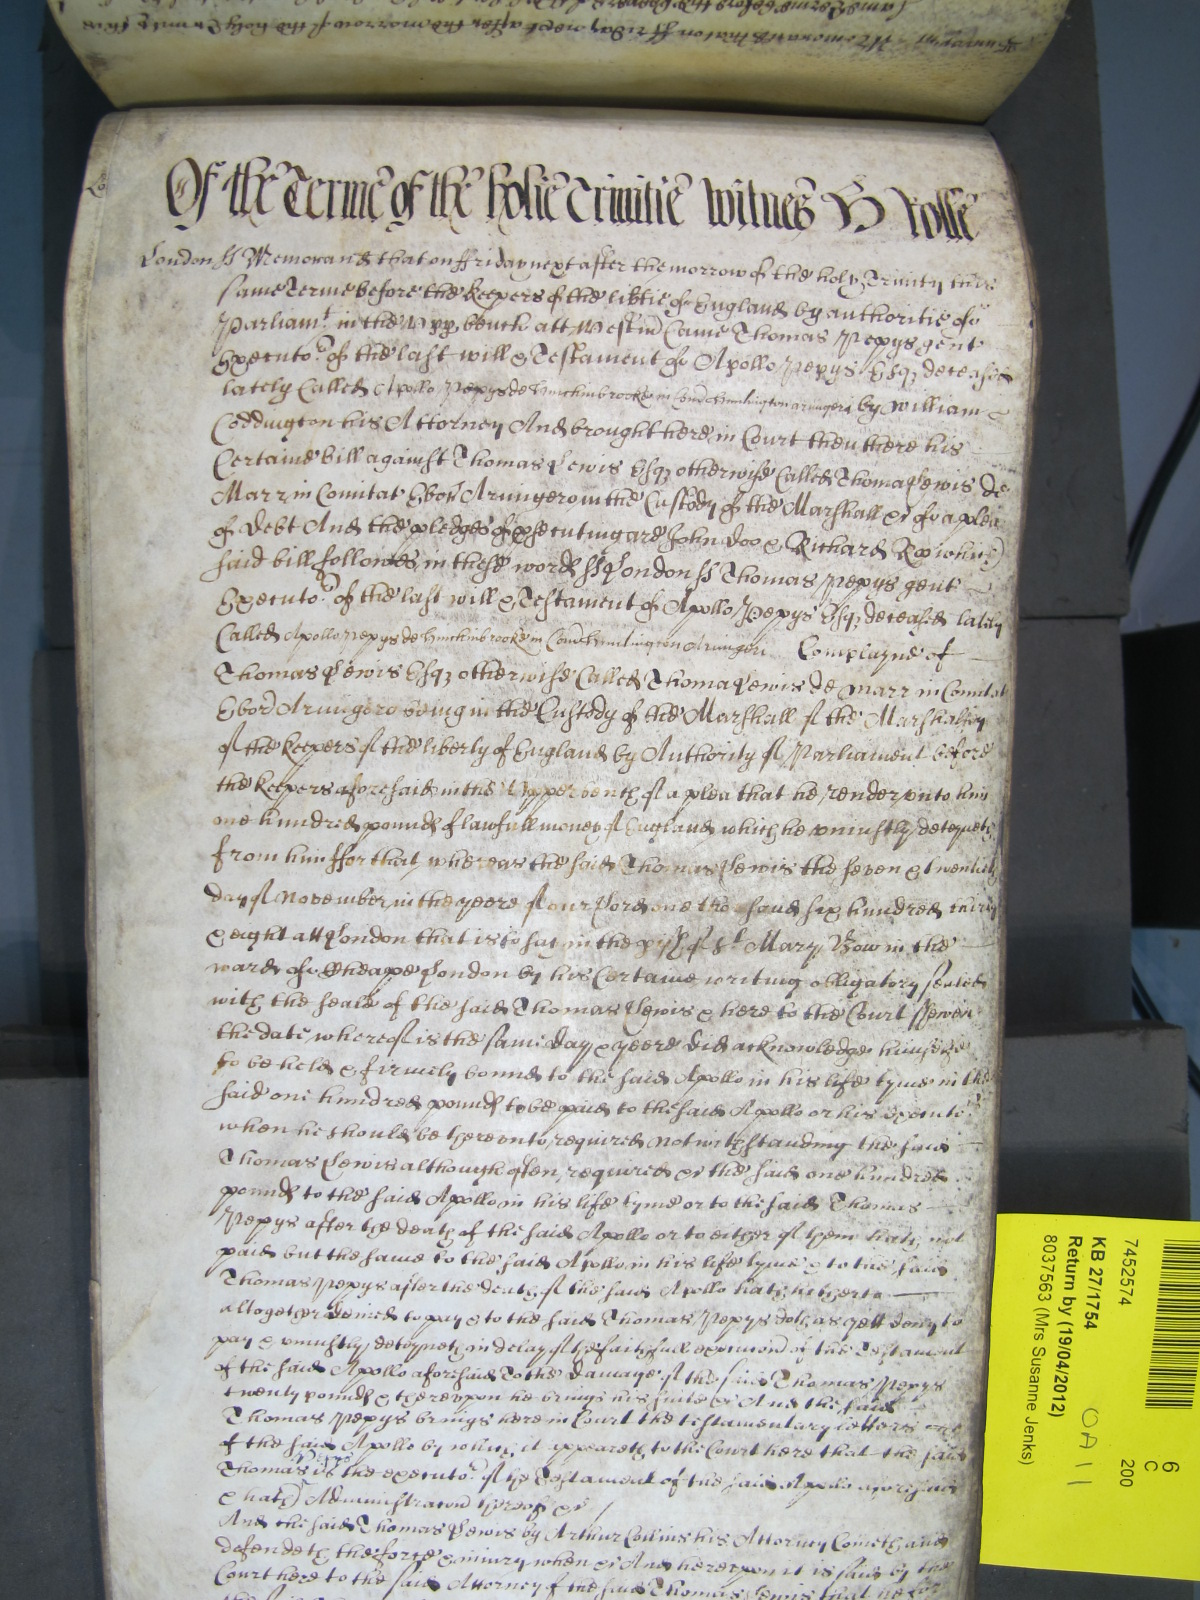 Of the Terme of the holie Trinitie Witnes H Rolle
London ss Memorand that on ffriday next after the morrow of the holy Trinity this
same Terme before the Keepers of the libtie of England by authoritie of
Parliamt in the Upp bench att Westm Came Thomas Pepys gent
Executor of the last will & Testament of Apollo Pepys Esq deceased
lately Called Apollo Pepys de Hinchinbrooke in Com Huntington armigeri by William
Coddington his Attorney And brought here in Court then there his
Certaine bill against Thomas Lewis Esq otherwise Called Thoma Lewis de
Marr in Comitat Ebor Armigero in the Custody of the Marshall &c of a plea
of Debt And the pledges of psecuting are John Doo & Richard Roo which
said bill followes in these words ss London ss Thomas Pepys gent
Executor of the last will & Testament of Apollo Pepys Esq deceased lately
Called Apollo Pepys de Hinchinbrooke in Com Huntington Armigeri Complayne of
Thomas Lewis Esq otherwise Called Thoma Lewis de Marr in Comitat
Ebor Armigero being in the Custody of the Marshall of the Marshalsey
of the Keepers of the liberty of England by Authority of Parliament before
the Keepers aforesaid in the Upper bench of a plea that he render unto him
one hundred pounds of lawfull money of England which he uniustly deteyneth
from him ffor that whereas the said Thomas Lewis the seven & twentieth
day of November in the yeere of our Lord one thousand six hundred thirty
& eight att London that is to say in the pish of St Mary Bow in the
ward of Cheape London by his Certaine writing obligatory sealed
with the seale of the said Thomas Lewis & here to the Court shewen
the date whereof is the same day & yeere did acknowledge himselfe
to be held & firmely bound to the said Apollo in his life tyme in the
said one hundred pounds to be paid to the said Apollo or his executors
when he should be thereunto required notwithstanding the said
Thomas Lewis although often required &c the said one hundred
pounds to the said Apollo in his life tyme or to the said Thomas
Pepys after the death of the said Apollo or to either of them hath not
paid but the same to the said Apollo in his life tyme & to the said
Thomas Pepys after the death of the said Apollo hath hitherto
altogether denied to pay & to the said Thomas Pepys doth as yett deny to
pay & uniustly deteyneth in delay of the faithfull execucion of the Testament
of the said Apollo aforesaid To the damage of the said Thomas Pepys
twenty pounds & thereupon he brings his suite &c And the said
Thomas Pepys brings here in Court the testamentary letters
of the said Apollo by which it appeareth to the Court here that the said
Thomas is the executor of the Testament of the said Apollo aforesaid
& hath Administracion thereof &c
And the said Thomas Lewis by Arthur Collins his Attorney Cometh and
defendeth the force & iniury when &c And hereupon it is said by the
Court here to the said Attorney of the said Thomas Lewis that he
7452574
KB 27/1754
Return by (19/04/2012)
8037563 (Mrs Susanne Jenks)
OA 11
200
6
C